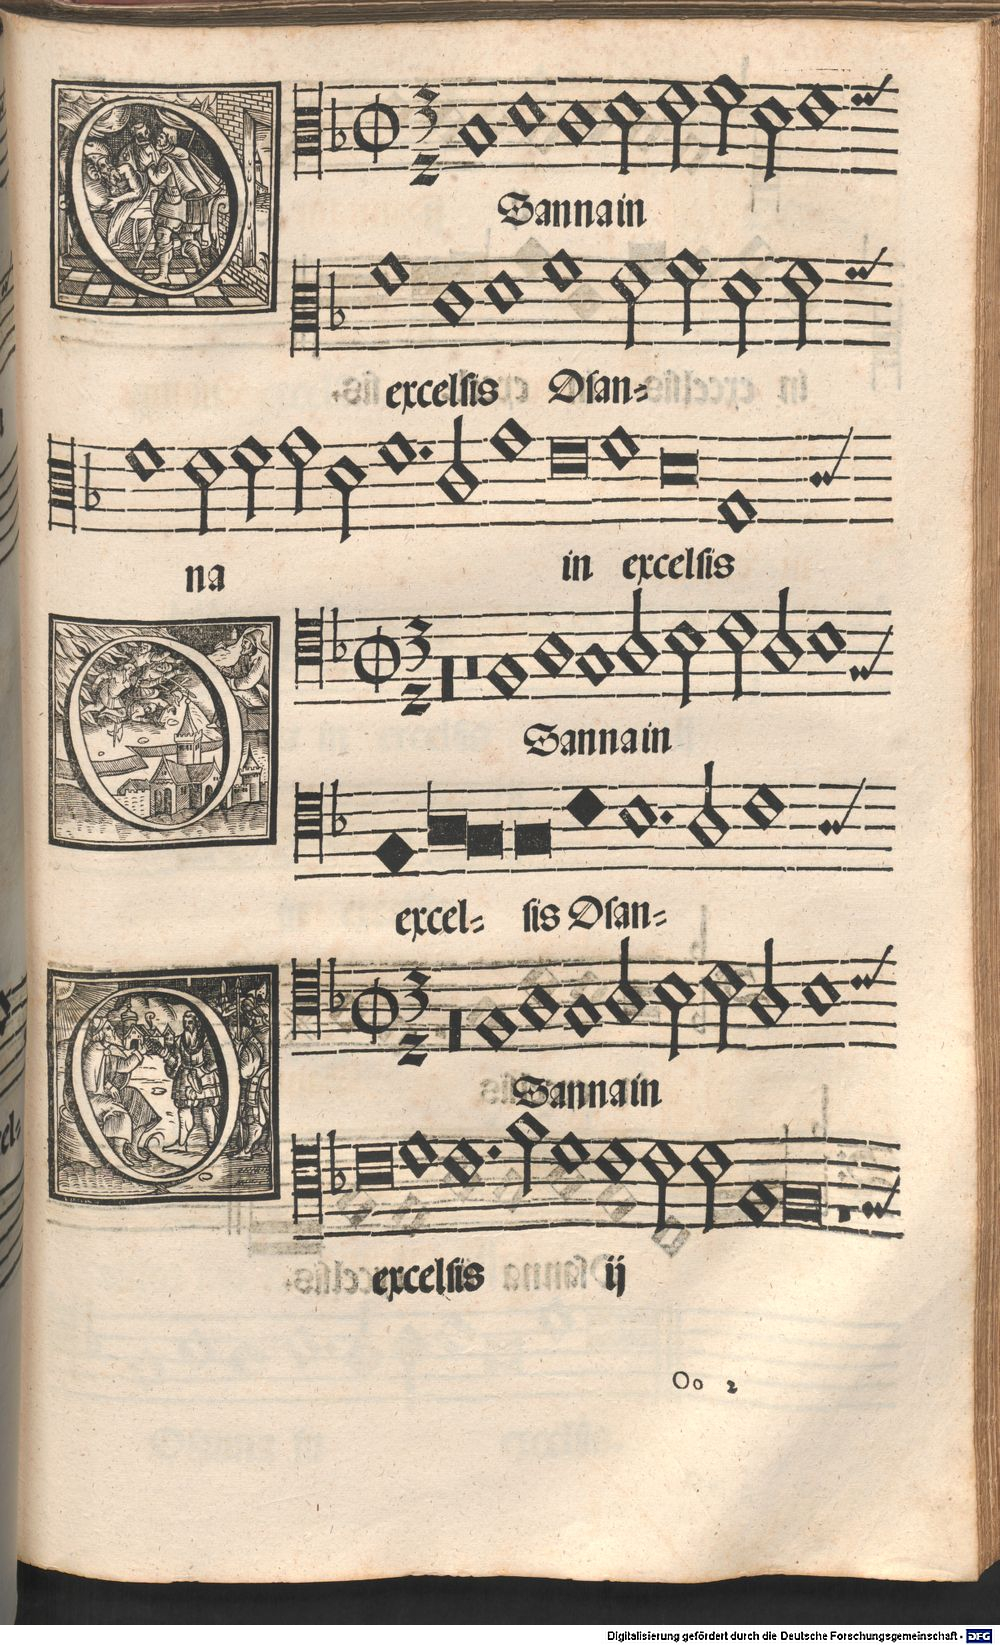 O Sannain
excelsis Osan-
na in excelsis
O Sannain
excel- sis Osan-
O Sannain
excelsis ij
Oo 2
Digitalisierung gefördert durch die Deutsche Forschungsgemeinschaft - DFG